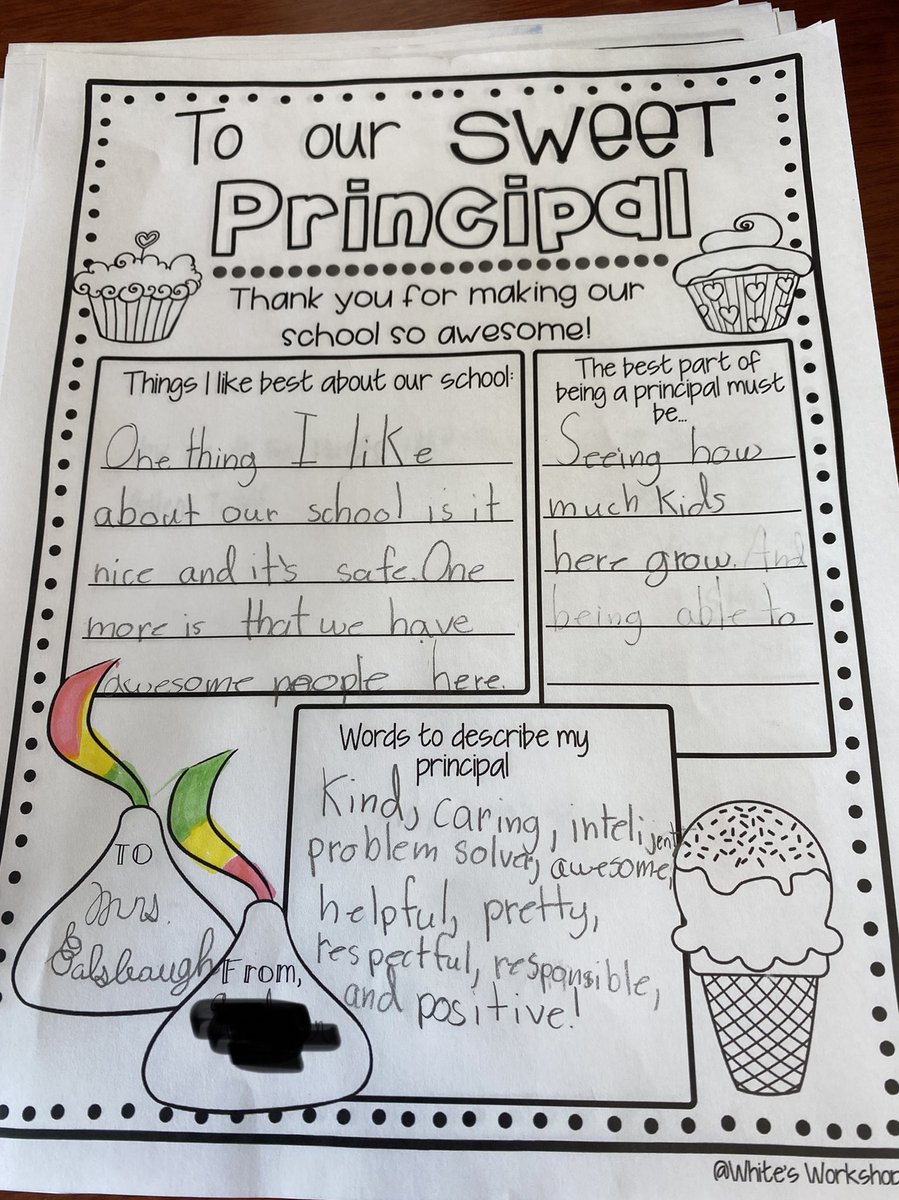 To our SWEET
Principal
Thank you for making our
school so awesome!
Things I like best about our school:
One thing I like
about our school is it
nice and it's safe. One
more is that we have
awesome people here.
The best part of
being a principal must
be...
Seeing how
much kids
here grow. And
being able to
Words to describe my
principal
Kind, caring, intelijent
problem solver, awesome,
helpful, pretty,
respectful, responsible,
and positive!
TO
Mrs.
From,
@White's Workshop